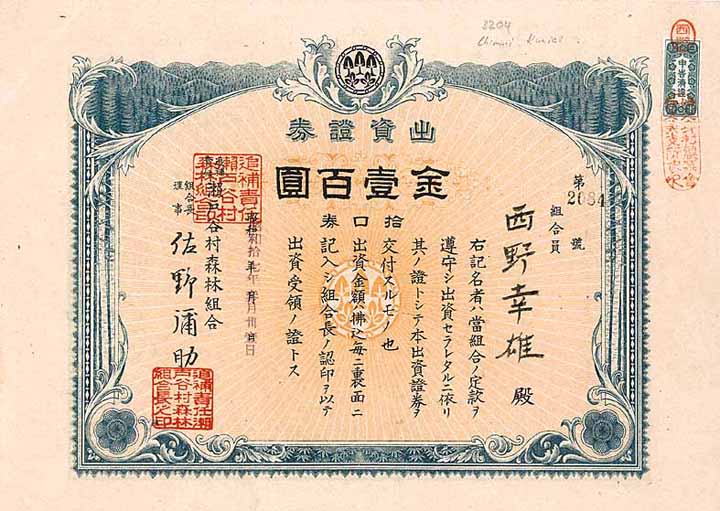 3204
出資證券
金壹百圓
第2084號
組合員 西野幸雄 殿
右記名者ハ當組合ノ定款ヲ
遵守シ出資セラレタルニ依リ
其ノ證トシテ本出資證券ヲ
交付スルモノ也
拾口
出資金額ハ拂込每ニ裏面ニ
記入シ組合長ノ認印ヲ以テ
出資受領ノ證トス
券
昭和拾七年 月 日
瀨戸谷村森林組合
組合長
理事
佐野彌助
追補責任瀨
戸谷村森林
組合長之印